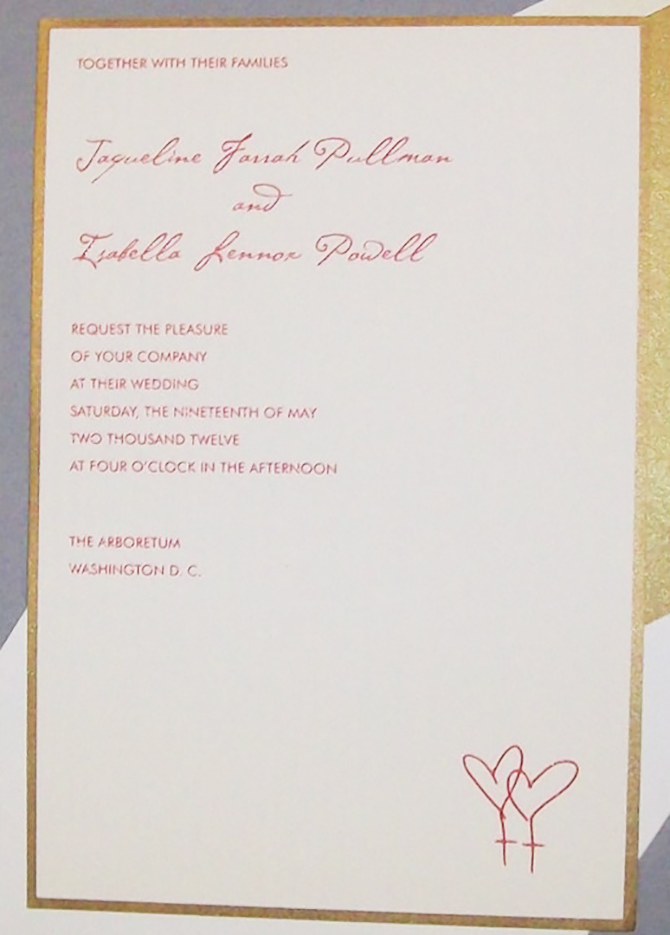 TOGETHER WITH THEIR FAMILIES
Jaqueline Farrah Pullman
and
Isabella Lennox Powell
REQUEST THE PLEASURE
OF YOUR COMPANY
AT THEIR WEDDING
SATURDAY, THE NINETEENTH OF MAY
TWO THOUSAND TWELVE
AT FOUR O'CLOCK IN THE AFTERNOON
THE ARBORETUM
WASHINGTON D. C.